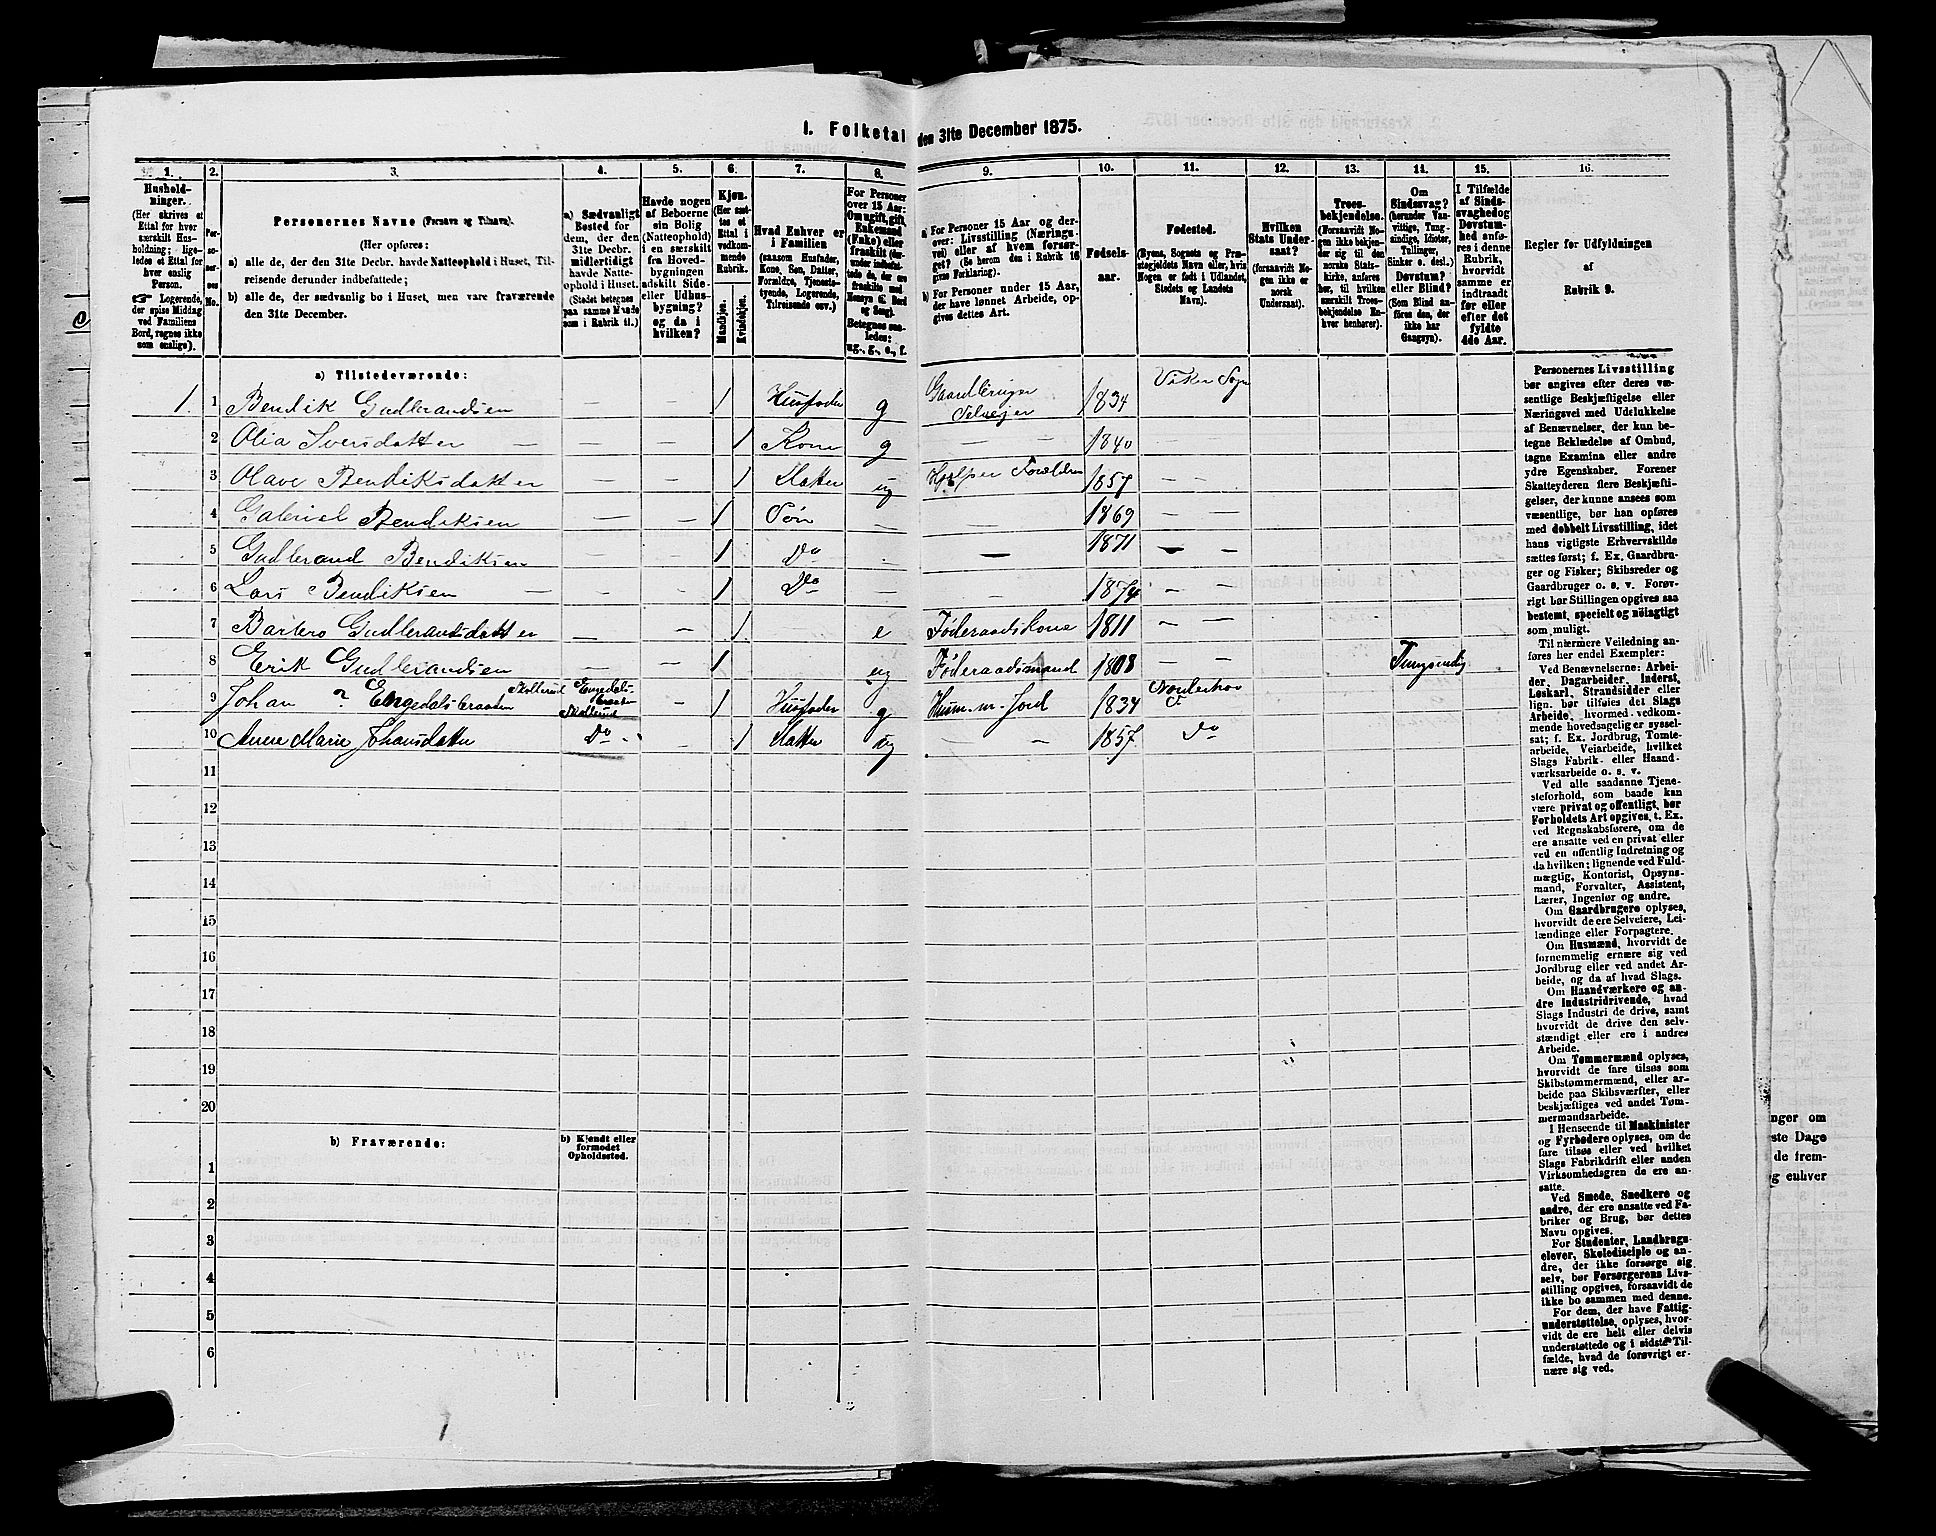 1. Folketal den 31te December 1875.
1.
2.
3.
4.
5.
6.
7.
8.
9.
10.
11.
12.
13.
14.
15.
16.
Hushold-
ninger.
(Her skrives et
Ettal for hver
særskilt Hus-
holdning; lige-
ledes et Ettal for
hver enslig
Person.
☞ Logerende,
der spise Middag
ved Familiens
Bord, regnes ikke
som enslige).
Per-
so-
ner-
nes
No.
Personernes Navne (Fornavn og Tilnavn).
(Her opføres:
a) alle de, der den 31te Decbr. havde Natteophold i Huset, Til-
reisende derunder indbefattede;
b) alle de, der sædvanlig bo i Huset, men vare fraværende
den 31te December.
a) Sædvanligt
Bosted for
dem, der den
31te Decbr.
midlertidigt
havde Natte-
ophold i Huset.
(Stedet betegnes
paa samme Maade
som i Rubrik 11.)
Havde nogen
af Beboerne
sin Bolig
(Natteophold)
i en særskilt
fra Hoved-
bygningen
adskilt Side-
eller Udhus-
bygning?
og da i
hvilken?
Kjøn.
(Her sæt-
tes et
Ettal i
vedkom-
mende
Rubrik.
Mandkjøn.
Kvindekjøn.
Hvad Enhver er
i Familien
(saasom Husfader,
Kone, Søn, Datter,
Forældre, Tjeneste-
tyende, Logerende,
Tilreisende osv.)
For Personer
over 15 Aar:
Om ugift, gift,
Enkemand
(Enke) eller
fraskilt
Betegnes saa-
ledes:
ug., g., e., f.
a) For Personer 15 Aar og der-
over: Livsstilling (Nærings-
vei) eller af hvem forsør-
get? (Se herom den i Rubrik 16
givne Forklaring).
b) For Personer under 15 Aar,
der have lønnet Arbeide, op-
gives dettes Art.
Fødsels-
aar.
Fødested.
(Byens, Sognets og Præ-
stegjeldets Navn eller, hvis
Nogen er født i Udlandet,
Stedets og Landets
Navn).
Hvilken
Stats Under-
saat?
(forsaavidt No-
gen ikke er
norsk
Undersaat).
Troes-
bekjendelse.
(Forsaavidt No-
gen ikke bekjen-
der sig til den
norske Stats-
kirke, anføres
her, til hvilken
særskilt Troes-
bekjendelse En-
hver henhører).
Om
Sindssvag?
(herunder Van-
vittige, Tung-
sindige, Idioter,
Tullinger,
Sinker o. desl.)
Døvstum?
eller Blind?
(Som Blind an-
føres den, der
ikke har
Gangsyn).
I Tilfælde
af Sinds-
svaghed og
Døvstum-
hed anfø-
res i denne
Rubrik,
hvorvidt
samme er
indtraadt
før eller
efter det
fyldte
4de Aar.
Regler for Udfyldningen
af
Rubrik 9.
a) Tilstedeværende:
1. 1 Bendik Gudbrandsen — — 1 Husfader g Gaardbruger Selveier 1834 Viker Sogn
2 Olia Iversdatter — — — 1 Kone g — — 1840 — —
3 Olave Bendiksdatter — — 1 Datter ug Hjelper Forældre 1857 — —
4 Gabriel Bendiksen — — 1 Søn — 1869 — —
5 Gudbrand Bendiksen — — 1 Do — — 1871 — —
6 Lars Bendiksen — — — 1 Do — — 1874 — —
7 Barbro Gudbrandsdatter — — 1 e Føderaadskone 1811 — —
8 Erik Gudbrandsen — — 1 ug Føderaadsmand 1808 — — Tungsindig
9 Johan ? Engedalsbraaten — 1 Husfader g Husm. m. Jord 1834 Norderhov
10 Anne Marie Johansdatter Do — 1 Datter ug — — 1857 Do
11
12
13
14
15
16
17
18
19
20
b) Fraværende:
b) Kjendt eller
formodet
Opholdssted.
1
2
3
4
5
6
Personernes Livsstilling
bør angives efter deres væ-
sentlige Beskjæftigelse eller
Næringsvei med Udelukkelse
af Benævnelser, der kun be-
tegne Beklædelse af Ombud,
tagne Examina eller andre
ydre Egenskaber. Forener
Skatteyderen flere Beskjæfti-
gelser, der kunne ansees som
væsentlige, bør han opføres
med dobbelt Livsstilling, idet
hans vigtigste Erhvervskilde
sættes først; f. Ex. Gaardbru-
ger og Fisker; Skibsreder og
Gaardbruger o. s. v. Forøv-
rigt bør Stillingen opgives saa
bestemt, specielt og nøiagtigt
som muligt.
Til nærmere Veiledning an-
føres her endel Exempler:
Ved Benævnelserne: Arbei-
der, Dagarbeider, Inderst,
Løskarl, Strandsidder eller
lign. bør tilføies det Slags
Arbeide, hvormed vedkom-
mende hovedsagelig er syssel-
sat; f. Ex. Jordbrug, Tomte-
arbeide, Veiarbeide, hvilket
Slags Fabrik- eller Haand-
værksarbeide o. s. v.
Ved alle saadanne Tjene-
steforhold, som baade kan
være privat og offentligt, bør
Forholdets Art opgives, t. Ex.
ved Regnskabsførere, om de
ere ansatte ved en privat eller
ved en offentlig Indretning og
da hvilken; lignende ved Fuld-
mægtig, Kontorist, Opsyns-
mand, Forvalter, Assistent,
Lærer, Ingeniør og andre.
Om Gaardbrugere oplyses,
hvorvidt de ere Selveiere, Lei-
lændinge eller Forpagtere.
Om Husmænd, hvorvidt de
fornemmelig ernære sig ved
Jordbrug eller ved andet Ar-
beide, og da af hvad Slags.
Om Haandværkere og an-
dre Industridrivende, hvad
Slags Industri de drive, samt
hvorvidt de drive den selv-
stændigt eller ere i andres
Arbeide.
Om Tømmermænd oplyses,
hvorvidt de fare tilsøs som
Skibstømmermænd, eller ar-
beide paa Skibsværfter, eller
beskjæftiges ved andet Tøm-
mermandsarbeide.
I Henseende til Maskinister
og Fyrbødere oplyses, om de
fare tilsøs eller ved hvilket
Slags Fabrikdrift eller anden
Virksomhedsgren de ere an-
satte.
Ved Smede, Snedkere og
andre, der ere ansatte ved Fa-
briker og Brug, bør dettes
Navn opgives.
For Studenter, Landbrugs-
elever, Skoledisciple og an-
dre, der ikke forsørge sig
selv, bør Forsørgerens Livs-
stilling opgives, forsaavidt de
ikke bo sammen med denne.
For dem, der have Fattig-
understøttelse, oplyses, hvor-
vidt de ere helt eller delvis
understøttede og i sidste Til-
fælde, hvad de forøvrigt er-
nære sig ved.